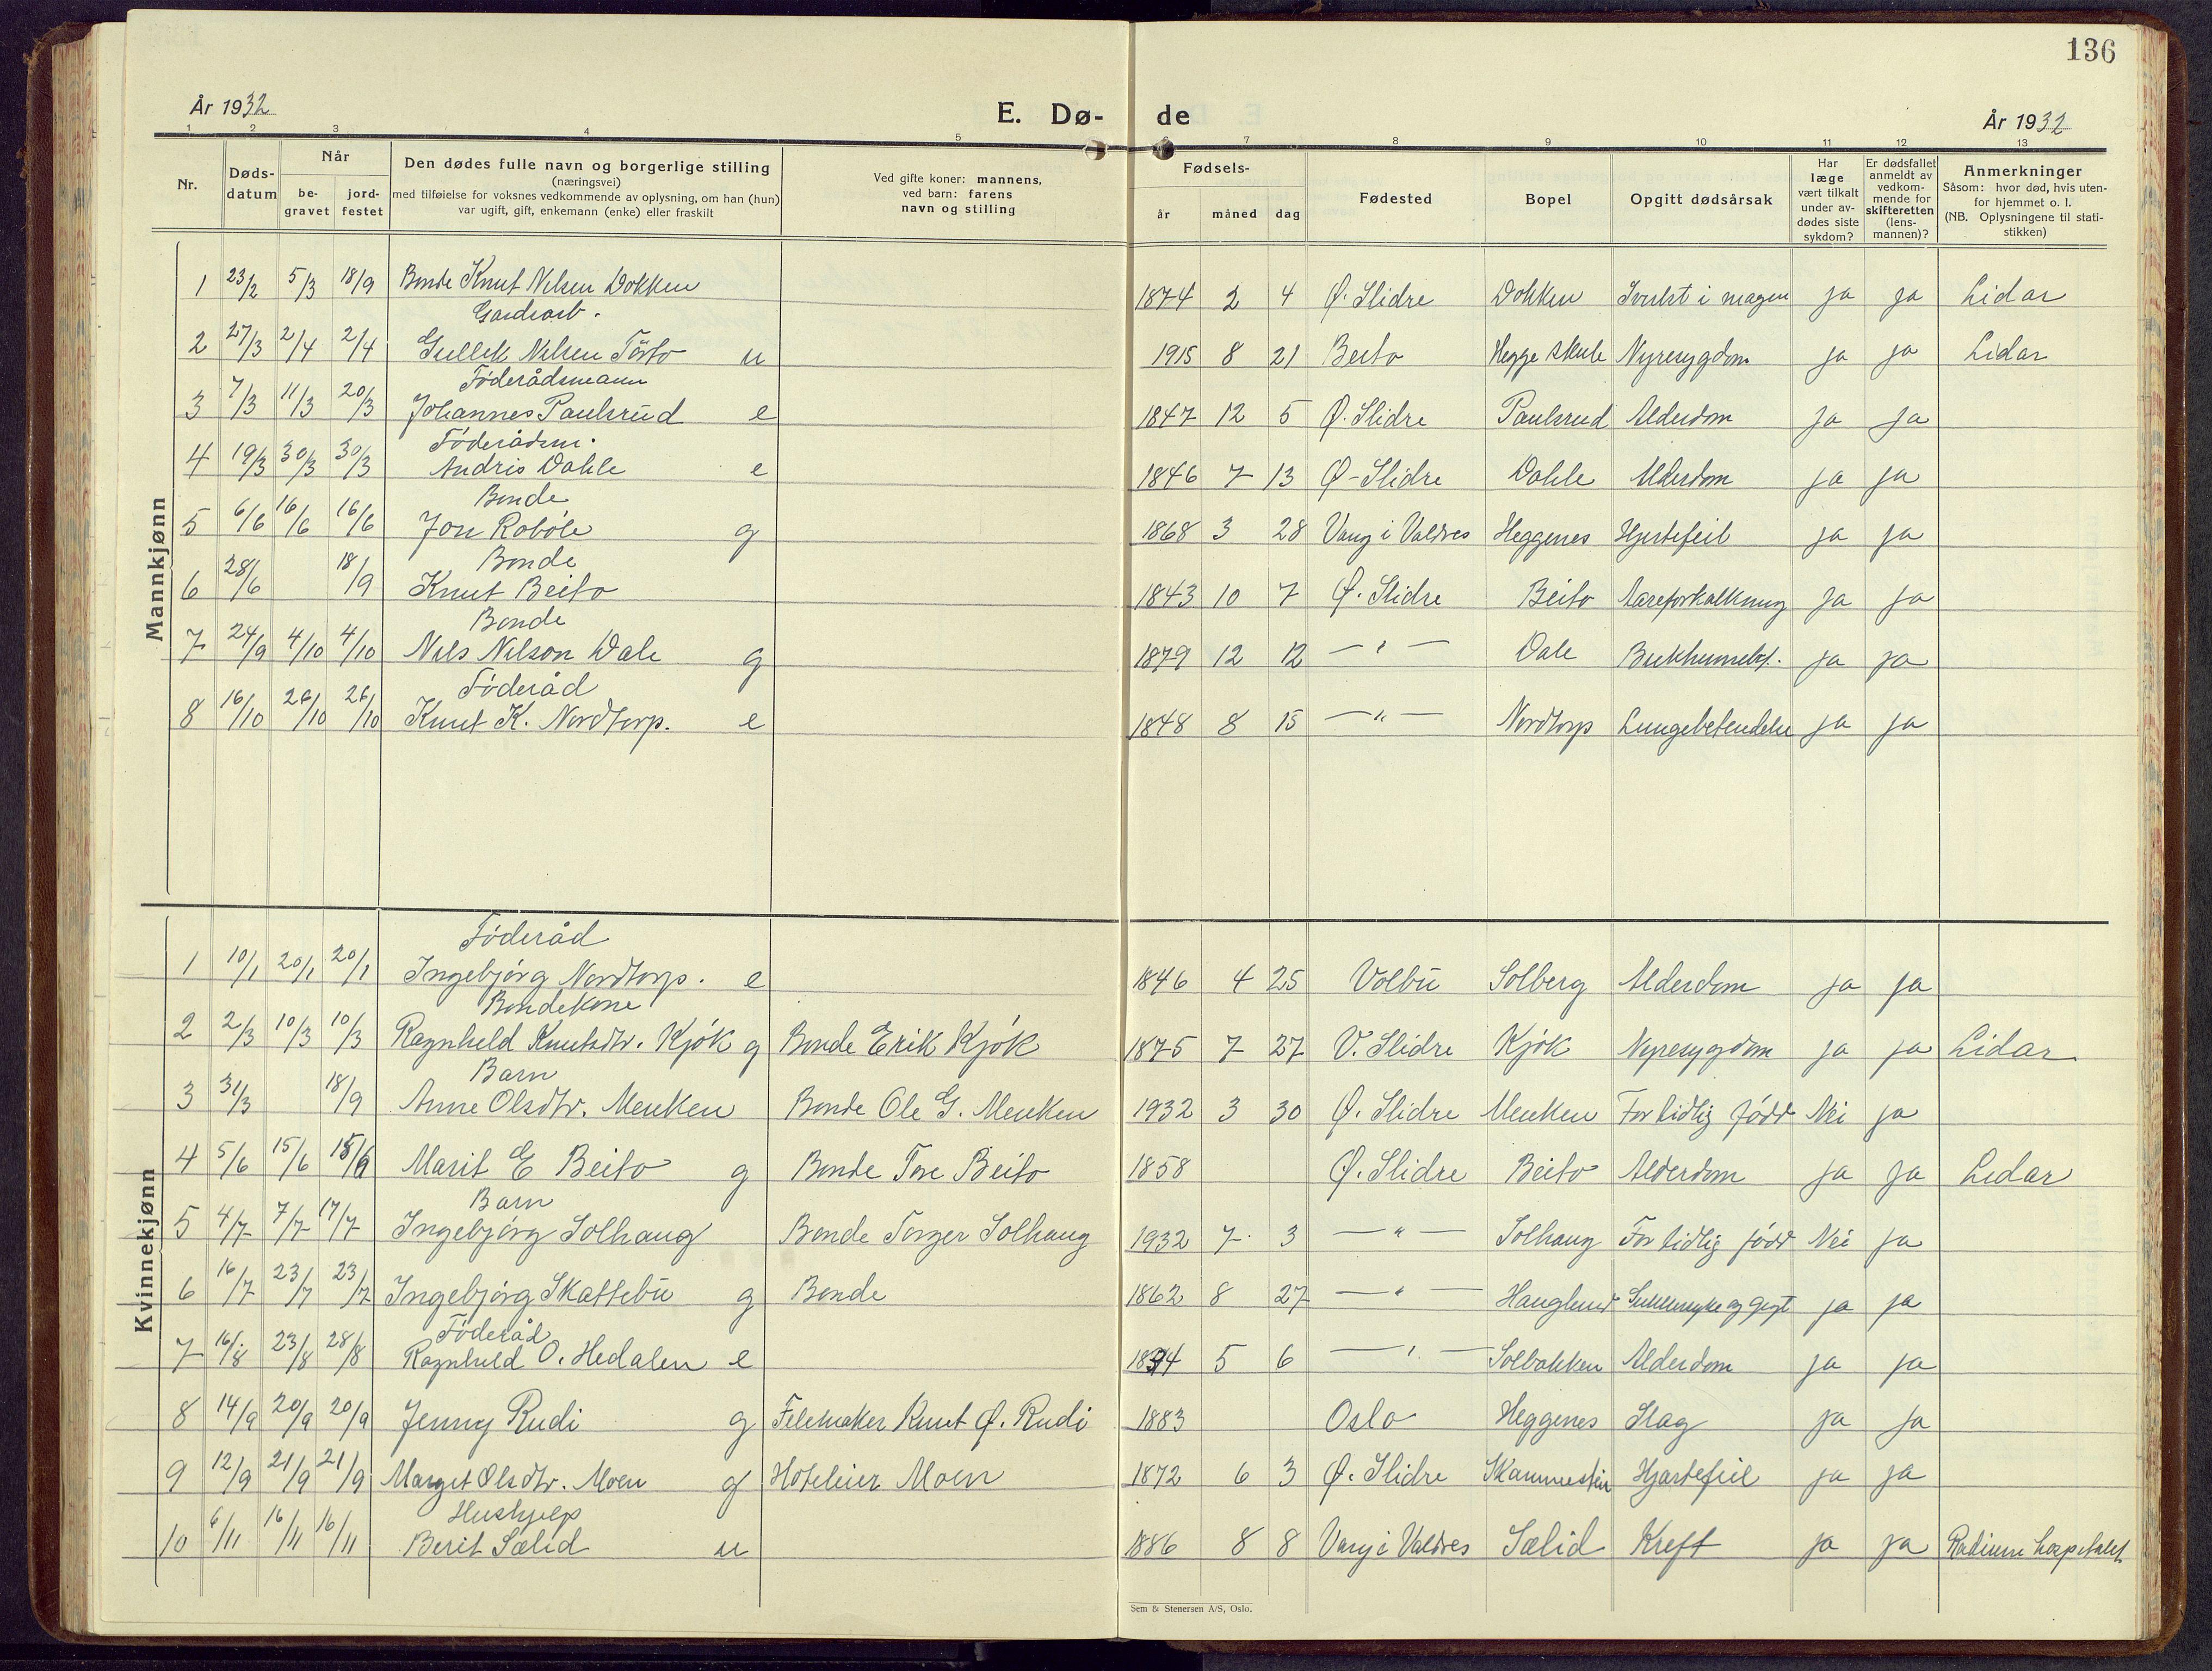 136
År 1932
E. Dø- de
År 1932
1 2 3 4 5 6 7 8 9 10 11 12 13
Nr.
Døds-
datum
Når
be-
gravet
jord-
festet
Den dødes fulle navn og borgerlige stilling
(næringsvei)
med tilføielse for voksnes vedkommende av oplysning, om han (hun)
var ugift, gift, enkemann (enke) eller fraskilt
Ved gifte koner: mannens,
ved barn: farens
navn og stilling
Fødsels-
år måned dag
Fødested
Bopel
Opgitt dødsårsak
Har
læge
vært tilkalt
under av-
dødes siste
sykdom?
Er dødsfallet
anmeldt av
vedkom-
mende for
skifteretten
(lens-
mannen)?
Anmerkninger
Såsom: hvor død, hvis uten-
for hjemmet o. l.
(NB. Oplysningene til stati-
stikken)
Mannkjønn
1 23/2 5/3 18/9 Bonde Knut Nilsen Dokken 1874 2 4 Ø. Slidre Dokken i magen ja ja Lidar
Gardsarb.
2 27/3 2/4 2/4 Gullik Nilsen u 1915 8 21 Beito Hegge skule Nyresygdom ja ja Lidar
Föderådsmann
3 7/3 11/3 20/3 Johannes Paulsrud e 1847 12 5 Ø. Slidre Paulsrud Alderdom ja ja
Föderådsm.
4 19/3 30/3 30/3 Andris Dahle e 1846 7 13 Ø-Slidre Dahle Alderdom ja ja
Bonde
5 6/6 16/6 16/6 Jon Robøle g 1868 3 28 Vang i Valdres Heggenes Hjertefeil ja ja
Bonde
6 28/6 18/9 Knut Beito 1843 10 7 Ø. Slidre Beito Aareforkalkning ja ja
Bonde
7 24/9 4/10 4/10 Nils Nilson Dale g 1879 12 12 — " — Dale Bukhinnebt. ja ja
Föderåd
8 16/10 26/10 26/10 Knut K. Nordtorp. e 1848 8 15 — " — Nordtorp Lungebetendelse ja ja
Kvinnekjønn
Föderåd
1 10/1 20/1 20/1 Ingebjörg Nordtorp. e 1846 4 25 Volbu Solberg Alderdom ja ja
Bondekone
2 2/3 10/3 10/3 Ragnhild Knutsdtr. Kjök g Bonde Erik Kjök 1875 7 27 V. Slidre Kjök Nyresygdom ja ja Lidar
Barn
3 31/3 18/9 Anne Olsdtr. Menken Bonde Ole G. Menken 1932 3 30 Ø. Slidre Menken For tidlig född Nei ja
4 5/6 15/6 Marit E Beito g Bonde Tore Beito 1858 Ø. Slidre Beito Alderdom ja ja Lidar
Barn
5 4/7 7/7 17/7 Ingebjörg Solhaug Bonde Torger Solhaug 1932 7. 3 — " — Solhaug For tidlig född Nei ja
6 16/7 23/7 23/7 Ingebjörg Skattebu g Bonde 1862 8 27 — " — Hauglund Sukkersyke og gigt ja ja
Föderåd
7 16/8 23/8 28/8 Ragnhild O. Hedalen e 5 6 — " — Solbakken Alderdom ja ja
8 14/9 20/9 20/9 Jenny Rudi g Felemaker Knut Ø. Rudi 1883 Oslo Heggenes Slag ja ja
9 12/9 21/9 21/9 Margit Olsdtr. Moen g Hoteleier Moen 1872 6 3 Ø. Slidre Skammestein Hjartefeil ja ja
Hushjelp
10 6/11 16/11 16/11 Berit Sælid u 1886 8 8 Vang i Valdres Sælid Kreft ja ja Radium hospitalet
Sem & Stenersen A/S, Oslo.